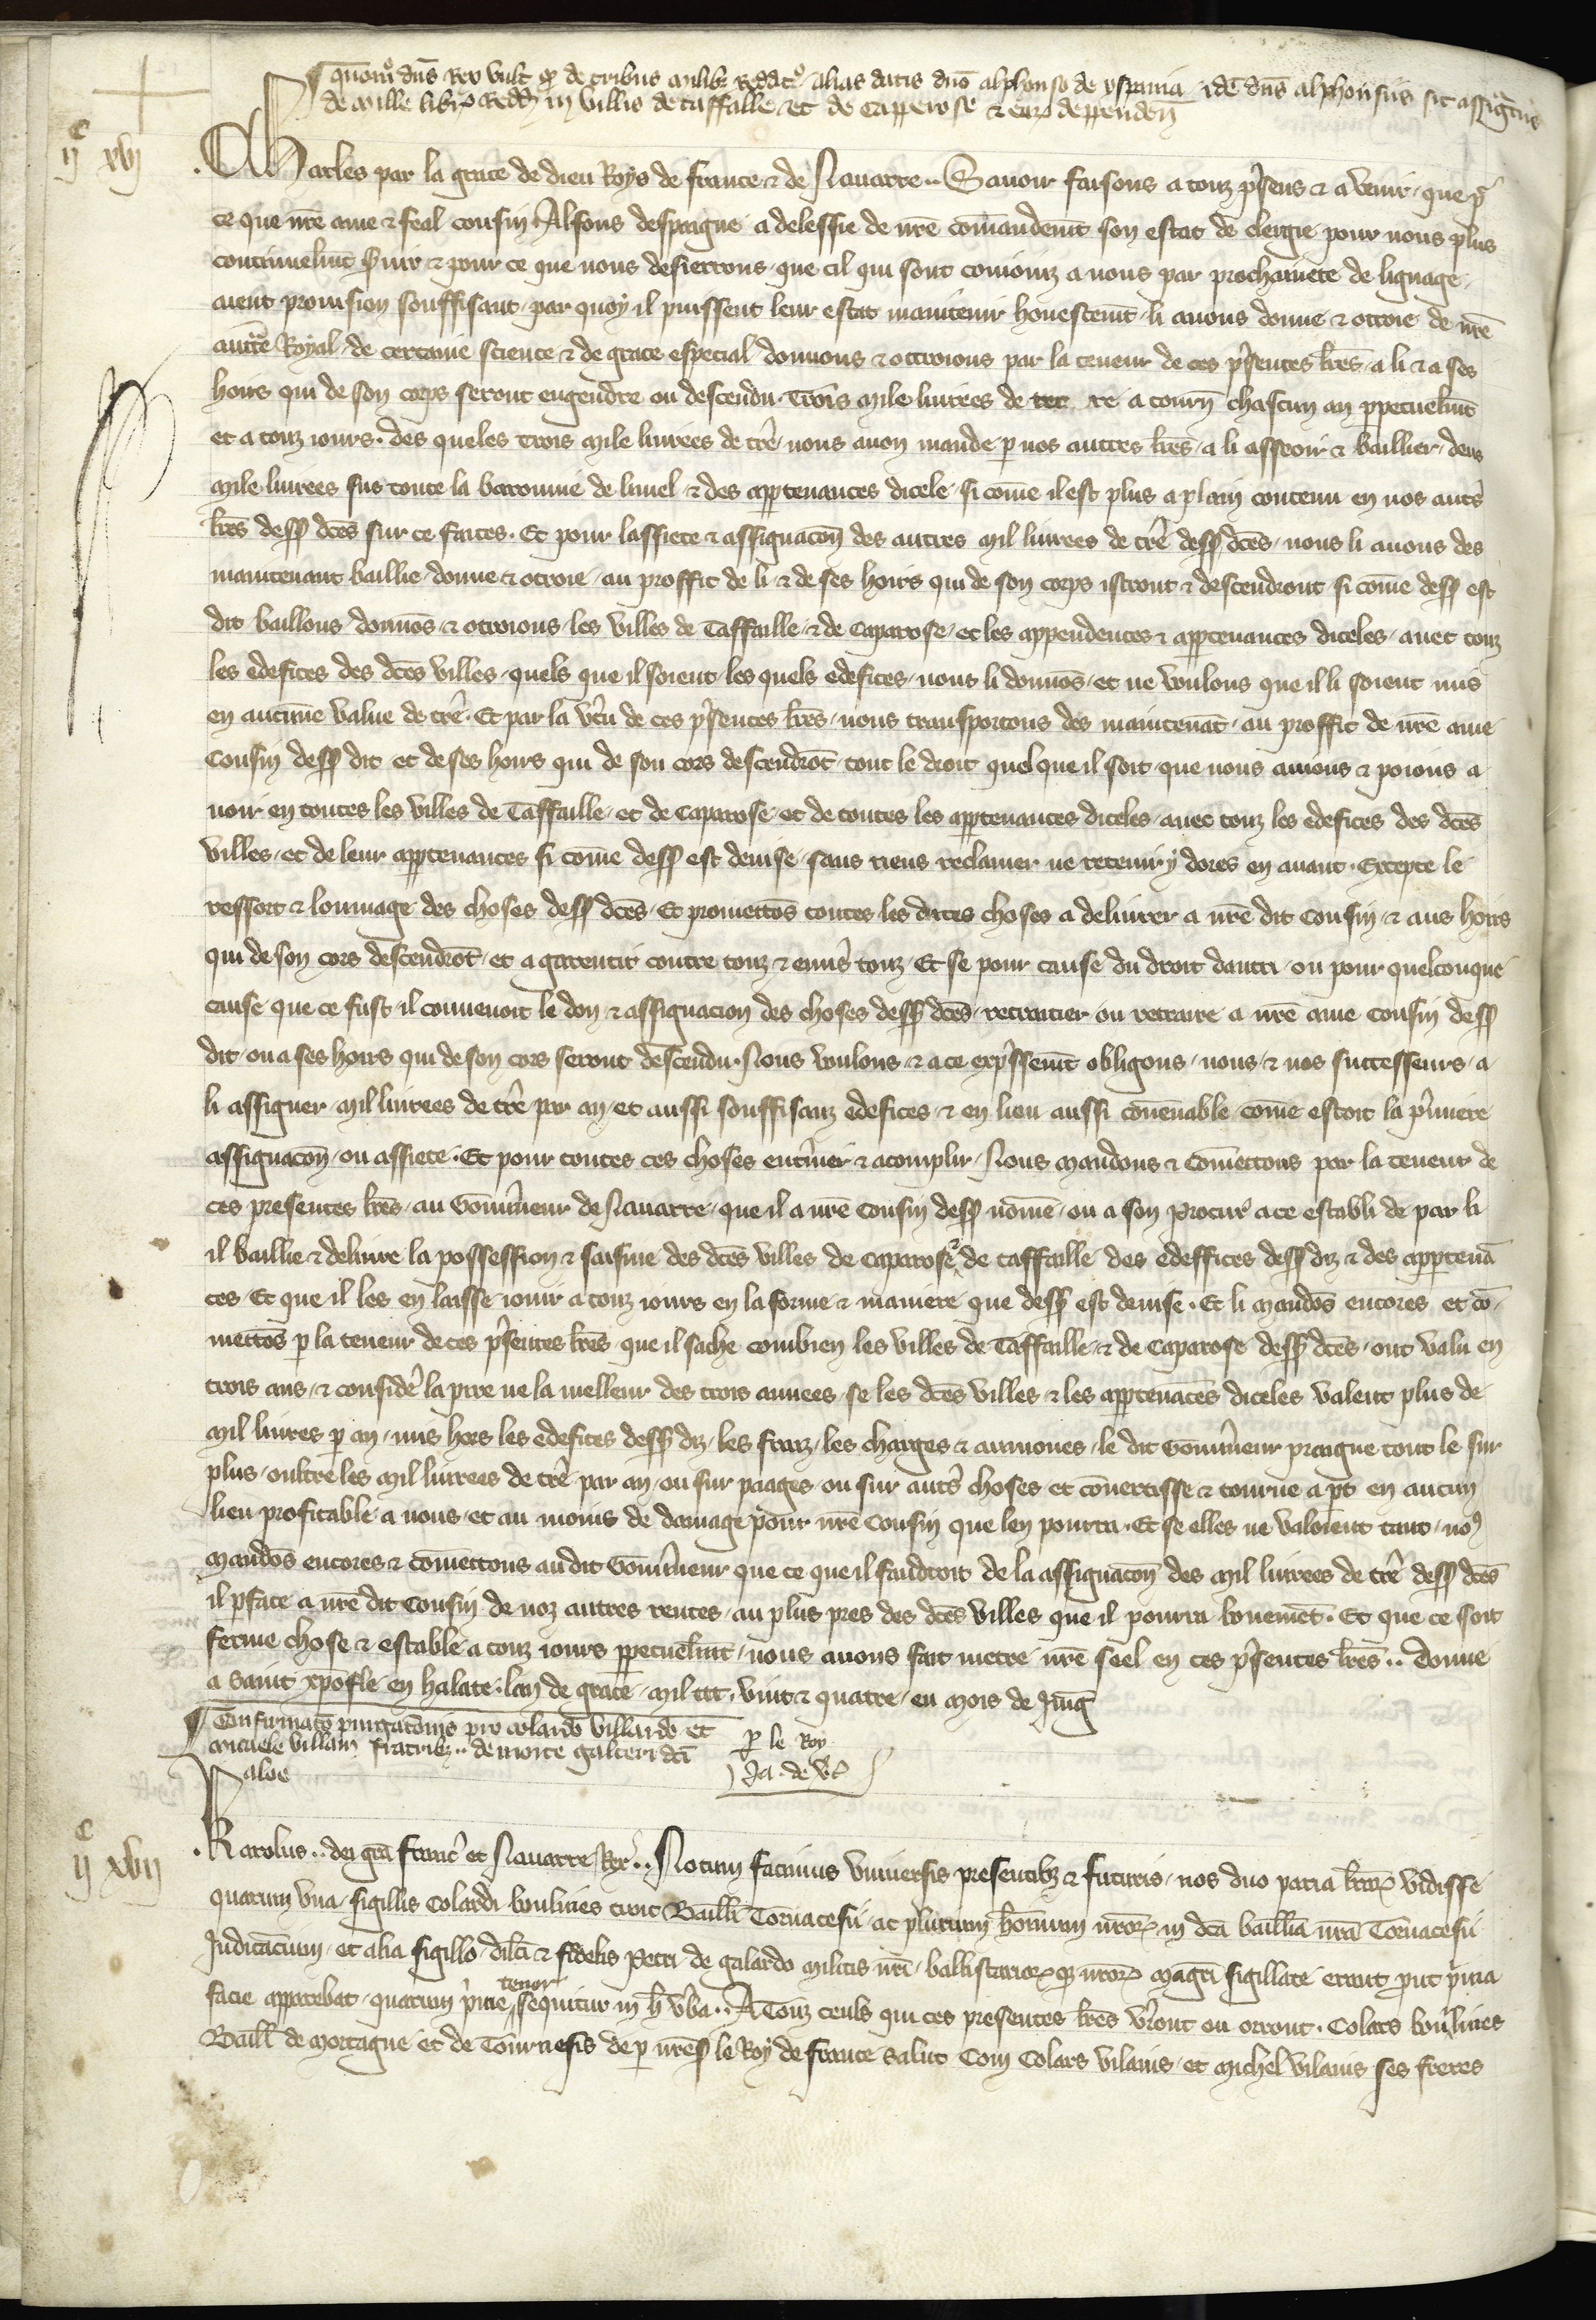 quomo dns Rex vult qd de tribus milibz reddit alias datis dno alphonso de yspania idē dns alphonsus sit assignatus
de mille libr redd in villis de taffalle et de capperose & ear deppendeñ
IIc XVI
Charles par la grace de dieu Roys de france & de Nauarre .. Sauoir faisons a touz p̄sens & a venir que p̄
ce que nr̄e ame & feal cousin Alfons despaigne a delessie de nr̄e com̄andem̄t son estat de clergie pour nous plus
continuelm̄t s̄uir & pour ce que nous desierrons que cil qui sont conioinz a nous par prochainete de lignage
aient prouision souffisant par quoy il puissent leur estat maintenir honestem̄t li auons donne & ottroie de nr̄e
auctē Royal de certaine science & de grace especial donnons & ottroions par la teneur de ces p̄sentes lr̄es a li & a ses
hoirs qui de son corps seront engendre ou descendu Trois mile liurees de ter re a tourn̄ chascun an ppetuelm̄t
et a touz iours des queles trois mile liurees de tr̄e nous auon mande p nos autres lr̄es a li asseoir & baillier deus
mile liurees sus toute la baronnie de lunel & des apptenances dicele si com̄e il est plus a plain contenu en nos autr̄s
lr̄es dess dc̄es sur ce faites Et pour lassiete & assignacōn des autres mil liurees de tr̄e dess dc̄es nous li auons des
maintenant baillie donne & otroie au proffit de li & de ses hoirs qui de son corps istront & descendront si com̄e dess est
dit baillons donnōs & otroions les villes de Taffaille & de Caparose et les appendences & apptenances diceles auec touz
les edefices des dc̄es villes quels que il soient les quels edefices nous li donnōs et ne voulons que il li soient mis
en aucune value de tr̄e Et par la v̄tu de ces p̄sentes lr̄es nous transportons des maintenāt au proffit de nr̄e ame
Cousin dess dit et de ses hoirs qui de son cors descendrōt tout le droit quel que il soit que nous auions & poions a
uoir en toutes les villes de Taffaille et de Caparose et de toutes les apptenances diceles auec touz les edefices des dc̄es
villes et de leur apptenances si com̄e dess est deuise sans riens reclamer ne retenir y dores en auant Excepte le
ressort & lommage des choses dess dc̄es Et promettōs toutes les dites choses a deliurer a nr̄e dit Cousin & aus hoirs
qui de son cors descendrōt et a garentir contre touz & enūs touz Et se pour cause du droit dautri ou pour quelconque
cause que ce fust il conuenoit le don & assignacion des choses dess dc̄es retraitier ou retraire a nr̄e ame Cousin dess
dit ou a ses hoirs qui de son cors seront descendu Nous voulons & a ce exp̄ssem̄t obligons nous & nos successeurs a
li assigner mil liurees de tr̄e par an et aussi souffisanz edefices & en lieu aussi cōuenable com̄e estoit la p̄miere
assignacōn ou assiete Et pour toutes ces choses ent̄iner & acomplir Nous mandons & Com̄ettons par la teneur de
ces presentes lr̄es au Gouūneur de Nauarre que il a nr̄e Cousin dess nom̄e ou a son Procur̄ a ce establi de par li
il baillie & deliure la possession & saisine des dc̄es villes de Caparose & de taffaille des edeffices dess diz & des apptenā
ces Et que il les en laisse iouir a touz iours en la forme & maniere que dess est deuise Et li mandōs encores et cō
mettōs p la teneur de ces p̄sentes lr̄es que il sache combien les villes de Taffaille & de Caparose dess dc̄es ont valu en
trois ans & consider̄ la pire ne la melleur des trois annees se les dc̄es villes & les apptenāces diceles valent plus de
mil liures p an mis hors les edefices dess diz les fraiz les charges & aumones le dit Gouūneur praigne tout le sur
plus oultre les mil liurees de tr̄e par an ou sur paages ou sur autr̄s choses et cōuertisse & tourne a pt en aucun
lieu profitable a nous et au moins de damage pour nr̄e Cousin que len pourra Et se elles ne valoient tant no9
mandōs encores & com̄ettons au dit Gouūneur que ce que il faudroit de la assignacōn des mil liurees de tr̄e dess dc̄es
il pface a nr̄e dit Cousin de noz autres rentes au plus pres des dc̄es villes que il pourra bonemēt Et que ce soit
ferme chose & estable a touz iours ppetuelm̄t nous auons fait metre nr̄e seel en ces p̄sentes lr̄es .. Donne
a saint xp̄ofle en halate lan de grace mil ccc vint & quatre en mois de Jung
Confirmatō purgatōnis pro colardo villardo et
micaele villain fratribz .. de morte galteri dc̄i
Paloe
p le Roy
Ja. de v̄t
IIc XVII
Karolus .. dei grā franc̄ et Nauarre Rex .. Notum facimus vniuersis presentibz & futuris nos duo paria lr̄ar vidisse
quarum vna sigillis Colardi boulines tunc Bailli Tornacesii ac plurium hominum nr̄or in dc̄a bailliā nr̄a Tornacesii
Judicācium et alia sigillo dil̄ci & fidelis Petri de galardo militis nr̄i ballistarior qz nr̄or magr̄i sigillate erant put p̄ma
tenor
facie apparebat quarum p̄me sequitur in h̄ v̄ba .. A Touz ceuls qui ces presentes lr̄es v̄ront ou orront Colars boulines
Baill̄ de Mortaigne et de Tournesis de p nr̄es le Roy de france Salut Com Colars vilains et Michel vilains ses freres